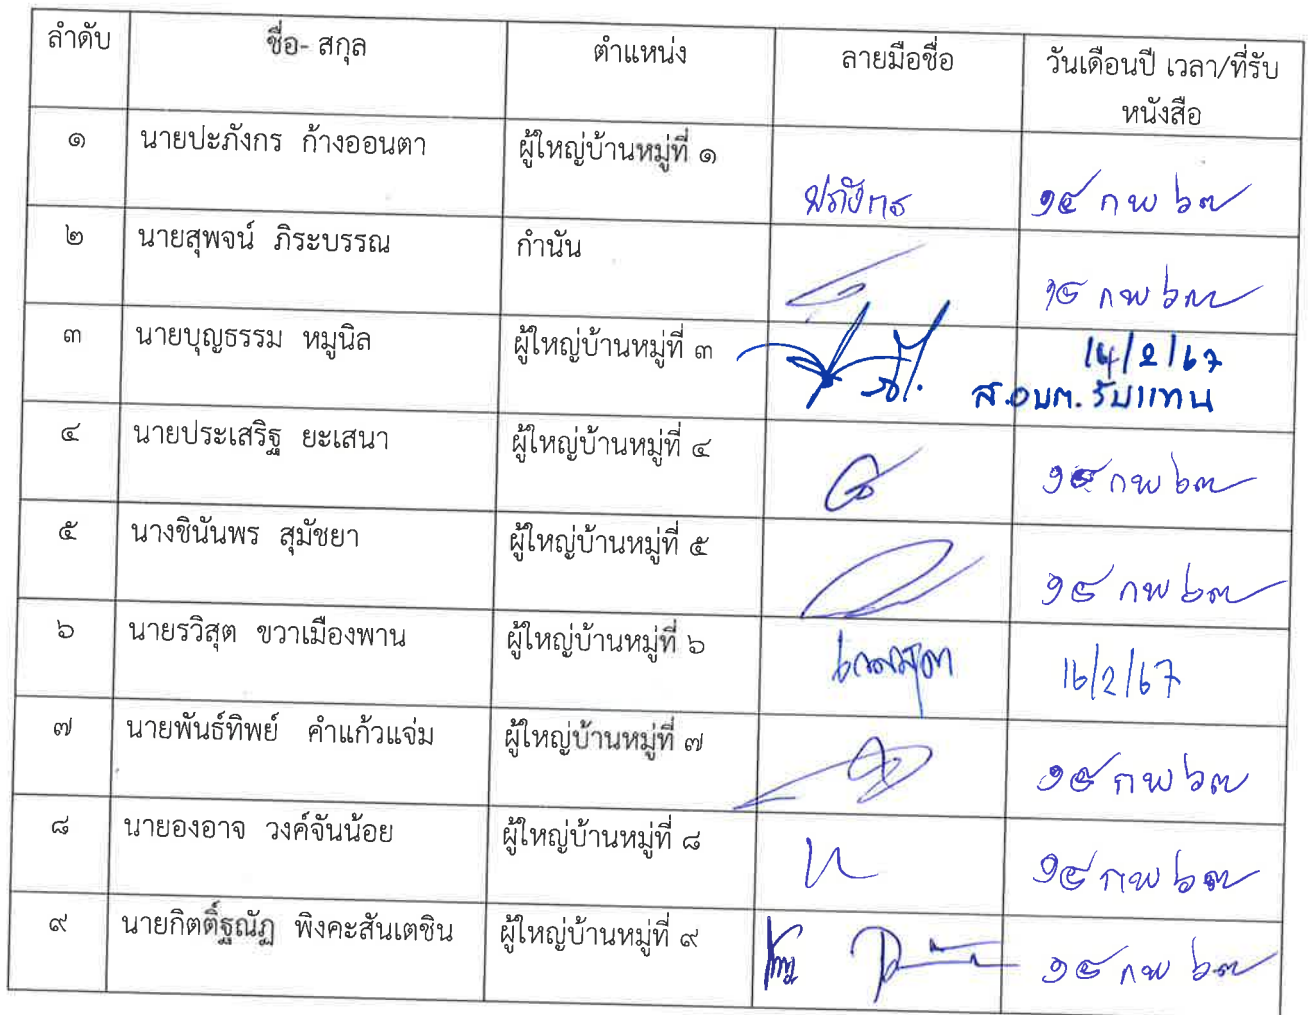 ลำดับ ชื่อ- สกุล ตำแหน่ง ลายมือชื่อ วันเดือนปี เวลา/ที่รับ
หนังสือ
๑ นายปะภังกร ก้างออนตา ผู้ใหญ่บ้านหมู่ที่ ๑
ปภังกร ๑๕ กพ ๖๗
๒ นายสุพจน์ ภิระบรรณ กำนัน
๑๕ กพ ๖๗
๓ นายบุญธรรม หมูนิล ผู้ใหญ่บ้านหมู่ที่ ๓ 14/2/67
ส.อบต. รับแทน
๔ นายประเสริฐ ยะเสนา ผู้ใหญ่บ้านหมู่ที่ ๔
๑๕ กพ ๖๗
๕ นางชินันพร สุมัชยา ผู้ใหญ่บ้านหมู่ที่ ๕
๑๕ กพ ๖๗
๖ นายรวิสุต ขวาเมืองพาน ผู้ใหญ่บ้านหมู่ที่ ๖
16/2/67
๗ นายพันธ์ทิพย์ คำแก้วแจ่ม ผู้ใหญ่บ้านหมู่ที่ ๗
๑๕ กพ ๖๗
๘ นายองอาจ วงค์จันน้อย ผู้ใหญ่บ้านหมู่ที่ ๘
๑๕ กพ ๖๗
๙ นายกิตติ์ฐณัฏ พิงคะสันเตชิน ผู้ใหญ่บ้านหมู่ที่ ๙
๑๕ กพ ๖๗